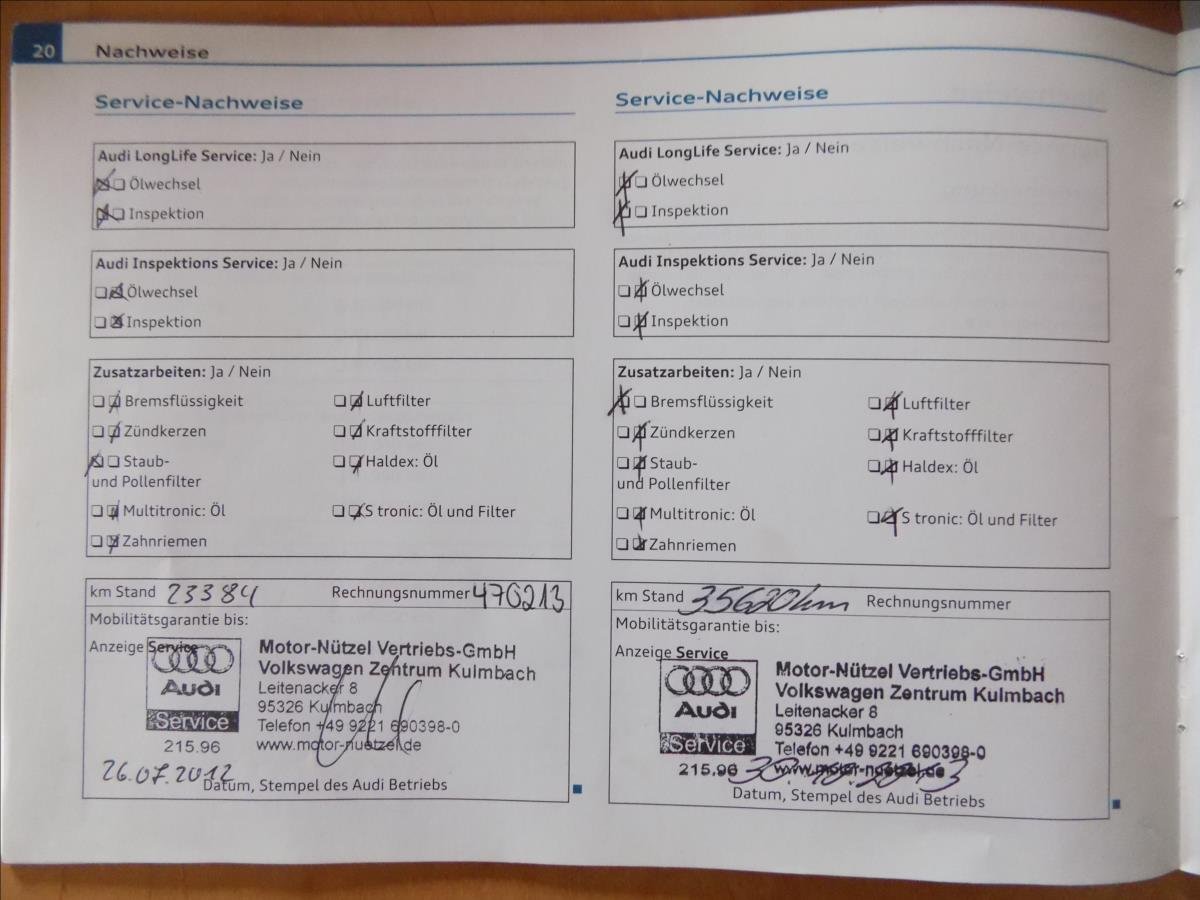 20 Nachweise
Service-Nachweise
Audi LongLife Service: Ja / Nein
Ölwechsel
Inspektion
Audi Inspektions Service: Ja / Nein
Ölwechsel
Inspektion
Zusatzarbeiten: Ja / Nein
Bremsflüssigkeit Luftfilter
Zündkerzen Kraftstofffilter
Staub- Haldex: Öl
und Pollenfilter
Multitronic: Öl S tronic: Öl und Filter
Zahnriemen
km Stand 23384 Rechnungsnummer 470213
Mobilitätsgarantie bis:
Anzeige Service
Audi
Service
215.96
Motor-Nützel Vertriebs-GmbH
Volkswagen Zentrum Kulmbach
Leitenacker 8
95326 Kulmbach
Telefon +49 9221 690398-0
www.motor-nuetzel.de
26.07.2012
Datum, Stempel des Audi Betriebs
Service-Nachweise
Audi LongLife Service: Ja / Nein
Ölwechsel
Inspektion
Audi Inspektions Service: Ja / Nein
Ölwechsel
Inspektion
Zusatzarbeiten: Ja / Nein
Bremsflüssigkeit Luftfilter
Zündkerzen Kraftstofffilter
Staub- Haldex: Öl
und Pollenfilter
Multitronic: Öl S tronic: Öl und Filter
Zahnriemen
km Stand 35620km Rechnungsnummer
Mobilitätsgarantie bis:
Anzeige Service
Audi
Service
215.96
Motor-Nützel Vertriebs-GmbH
Volkswagen Zentrum Kulmbach
Leitenacker 8
95326 Kulmbach
Telefon +49 9221 690398-0
www.motor-nuetzel.de
Datum, Stempel des Audi Betriebs